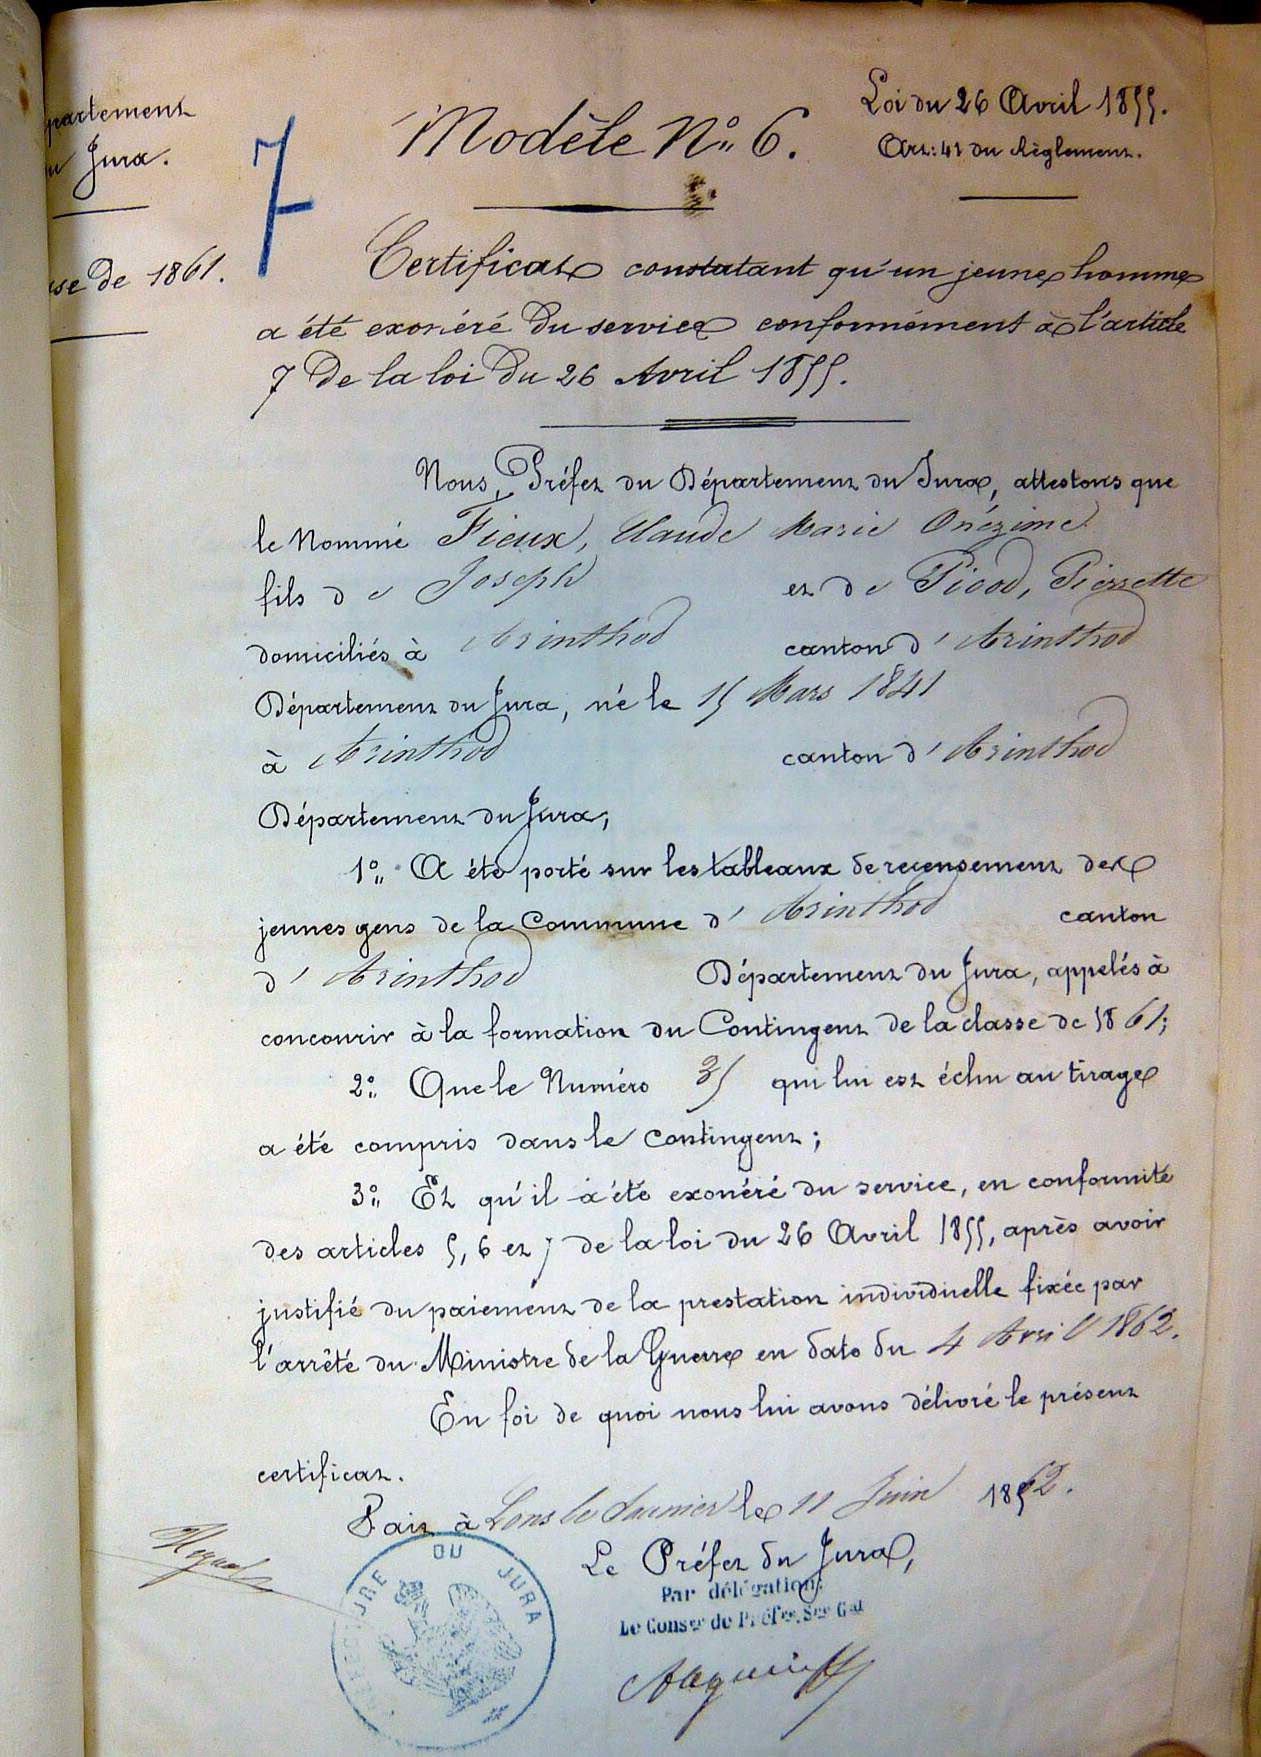 partement
u Jura.
sse de 1861.
7
Modèle N° 6.
Loi du 26 Avril 1855.
Art: 41 du Règlement.
Certificat constatant qu'un jeune homme
a été exonéré du service conformément à l'article
7 de la loi du 26 Avril 1855.
Nous, Préfet du Département du Jura, attestons que
le Nommé Fieux, Claude Marie Onézime
fils de Joseph et de Picod, Pierrette
domiciliés à Arinthod canton d'Arinthod
Département du Jura, né le 15 Mars 1841
à Arinthod canton d'Arinthod
Département du Jura;
1° A été porté sur les tableaux de recensement des
jeunes gens de la Commune d'Arinthod canton
d'Arinthod Département du Jura, appelés à
concourir à la formation du Contingent de la classe de 1861;
2° Que le Numéro 35 qui lui est échu au tirage
a été compris dans le contingent;
3° Et qu'il a été exonéré du service, en conformité
des articles 5, 6 et 7 de la loi du 26 Avril 1855, après avoir
justifié du paiement de la prestation individuelle fixée par
l'arrêté du Ministre de la Guerre en date du 4 Avril 1862.
En foi de quoi nous lui avons délivré le présent
certificat.
Fait à Lons le Saunier le 11 Juin 1862.
Le Préfet du Jura,
Par délégation:
Le Conser de Préfre, Sre Gal
PRÉFECTURE DU JURA